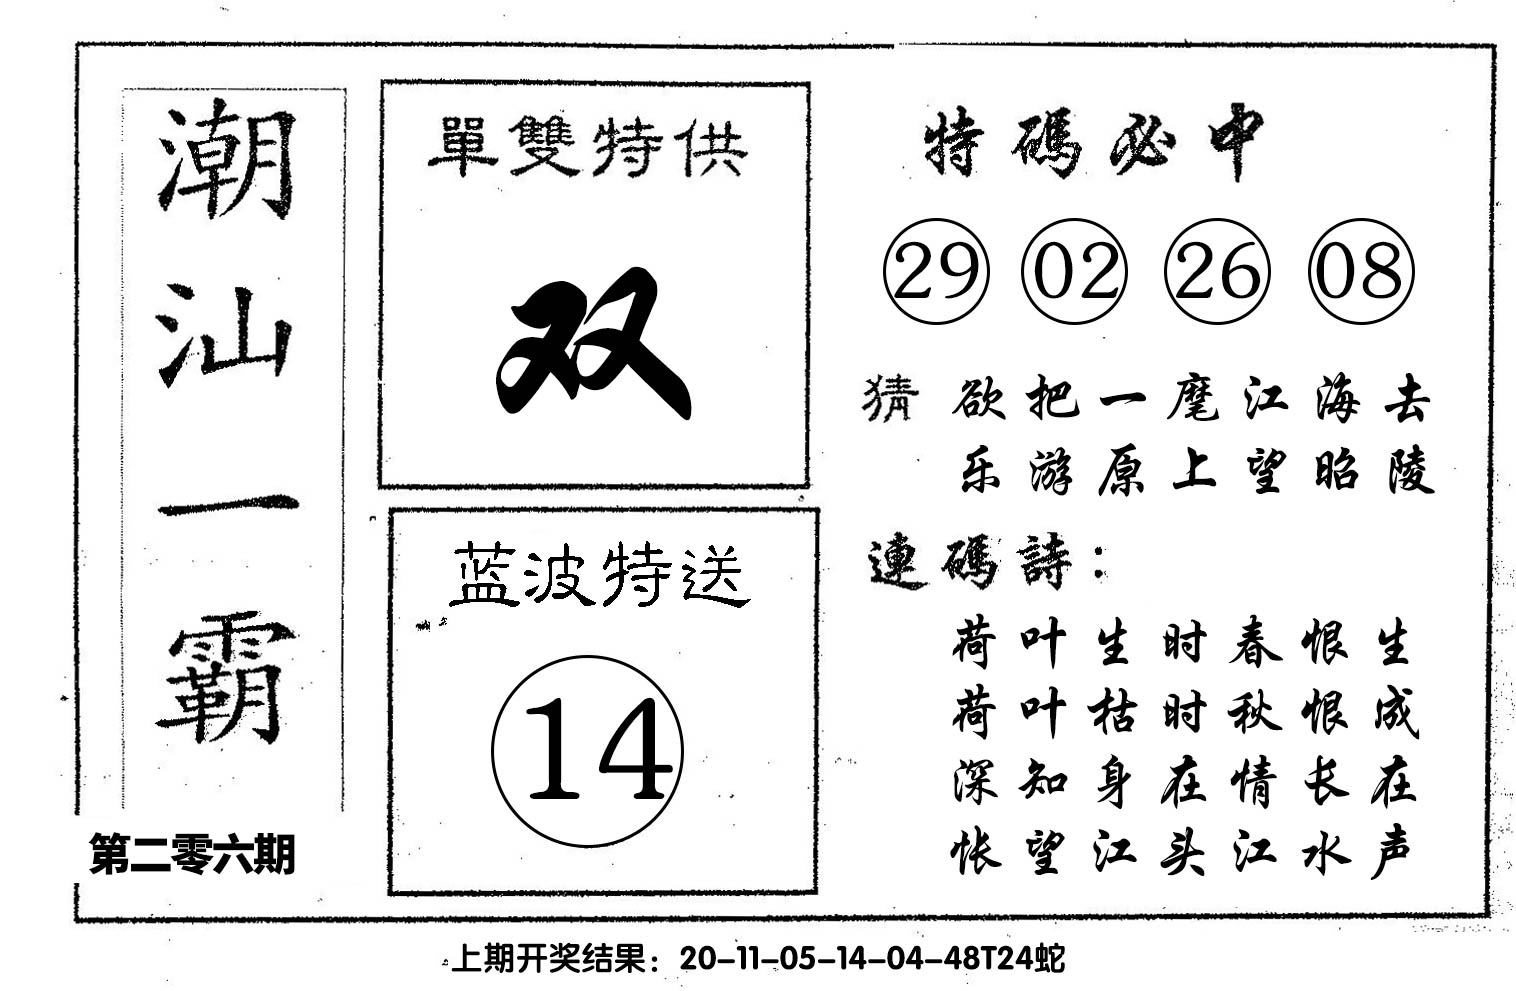 潮汕一霸
第二零六期
單雙特供
双
蓝波特送
14
特碼必中
29 02 26 08
猜 欲把一麾江海去
乐游原上望昭陵
連碼詩：
荷叶生时春恨生
荷叶枯时秋恨成
深知身在情长在
怅望江头江水声
上期开奖结果：20-11-05-14-04-48T24蛇